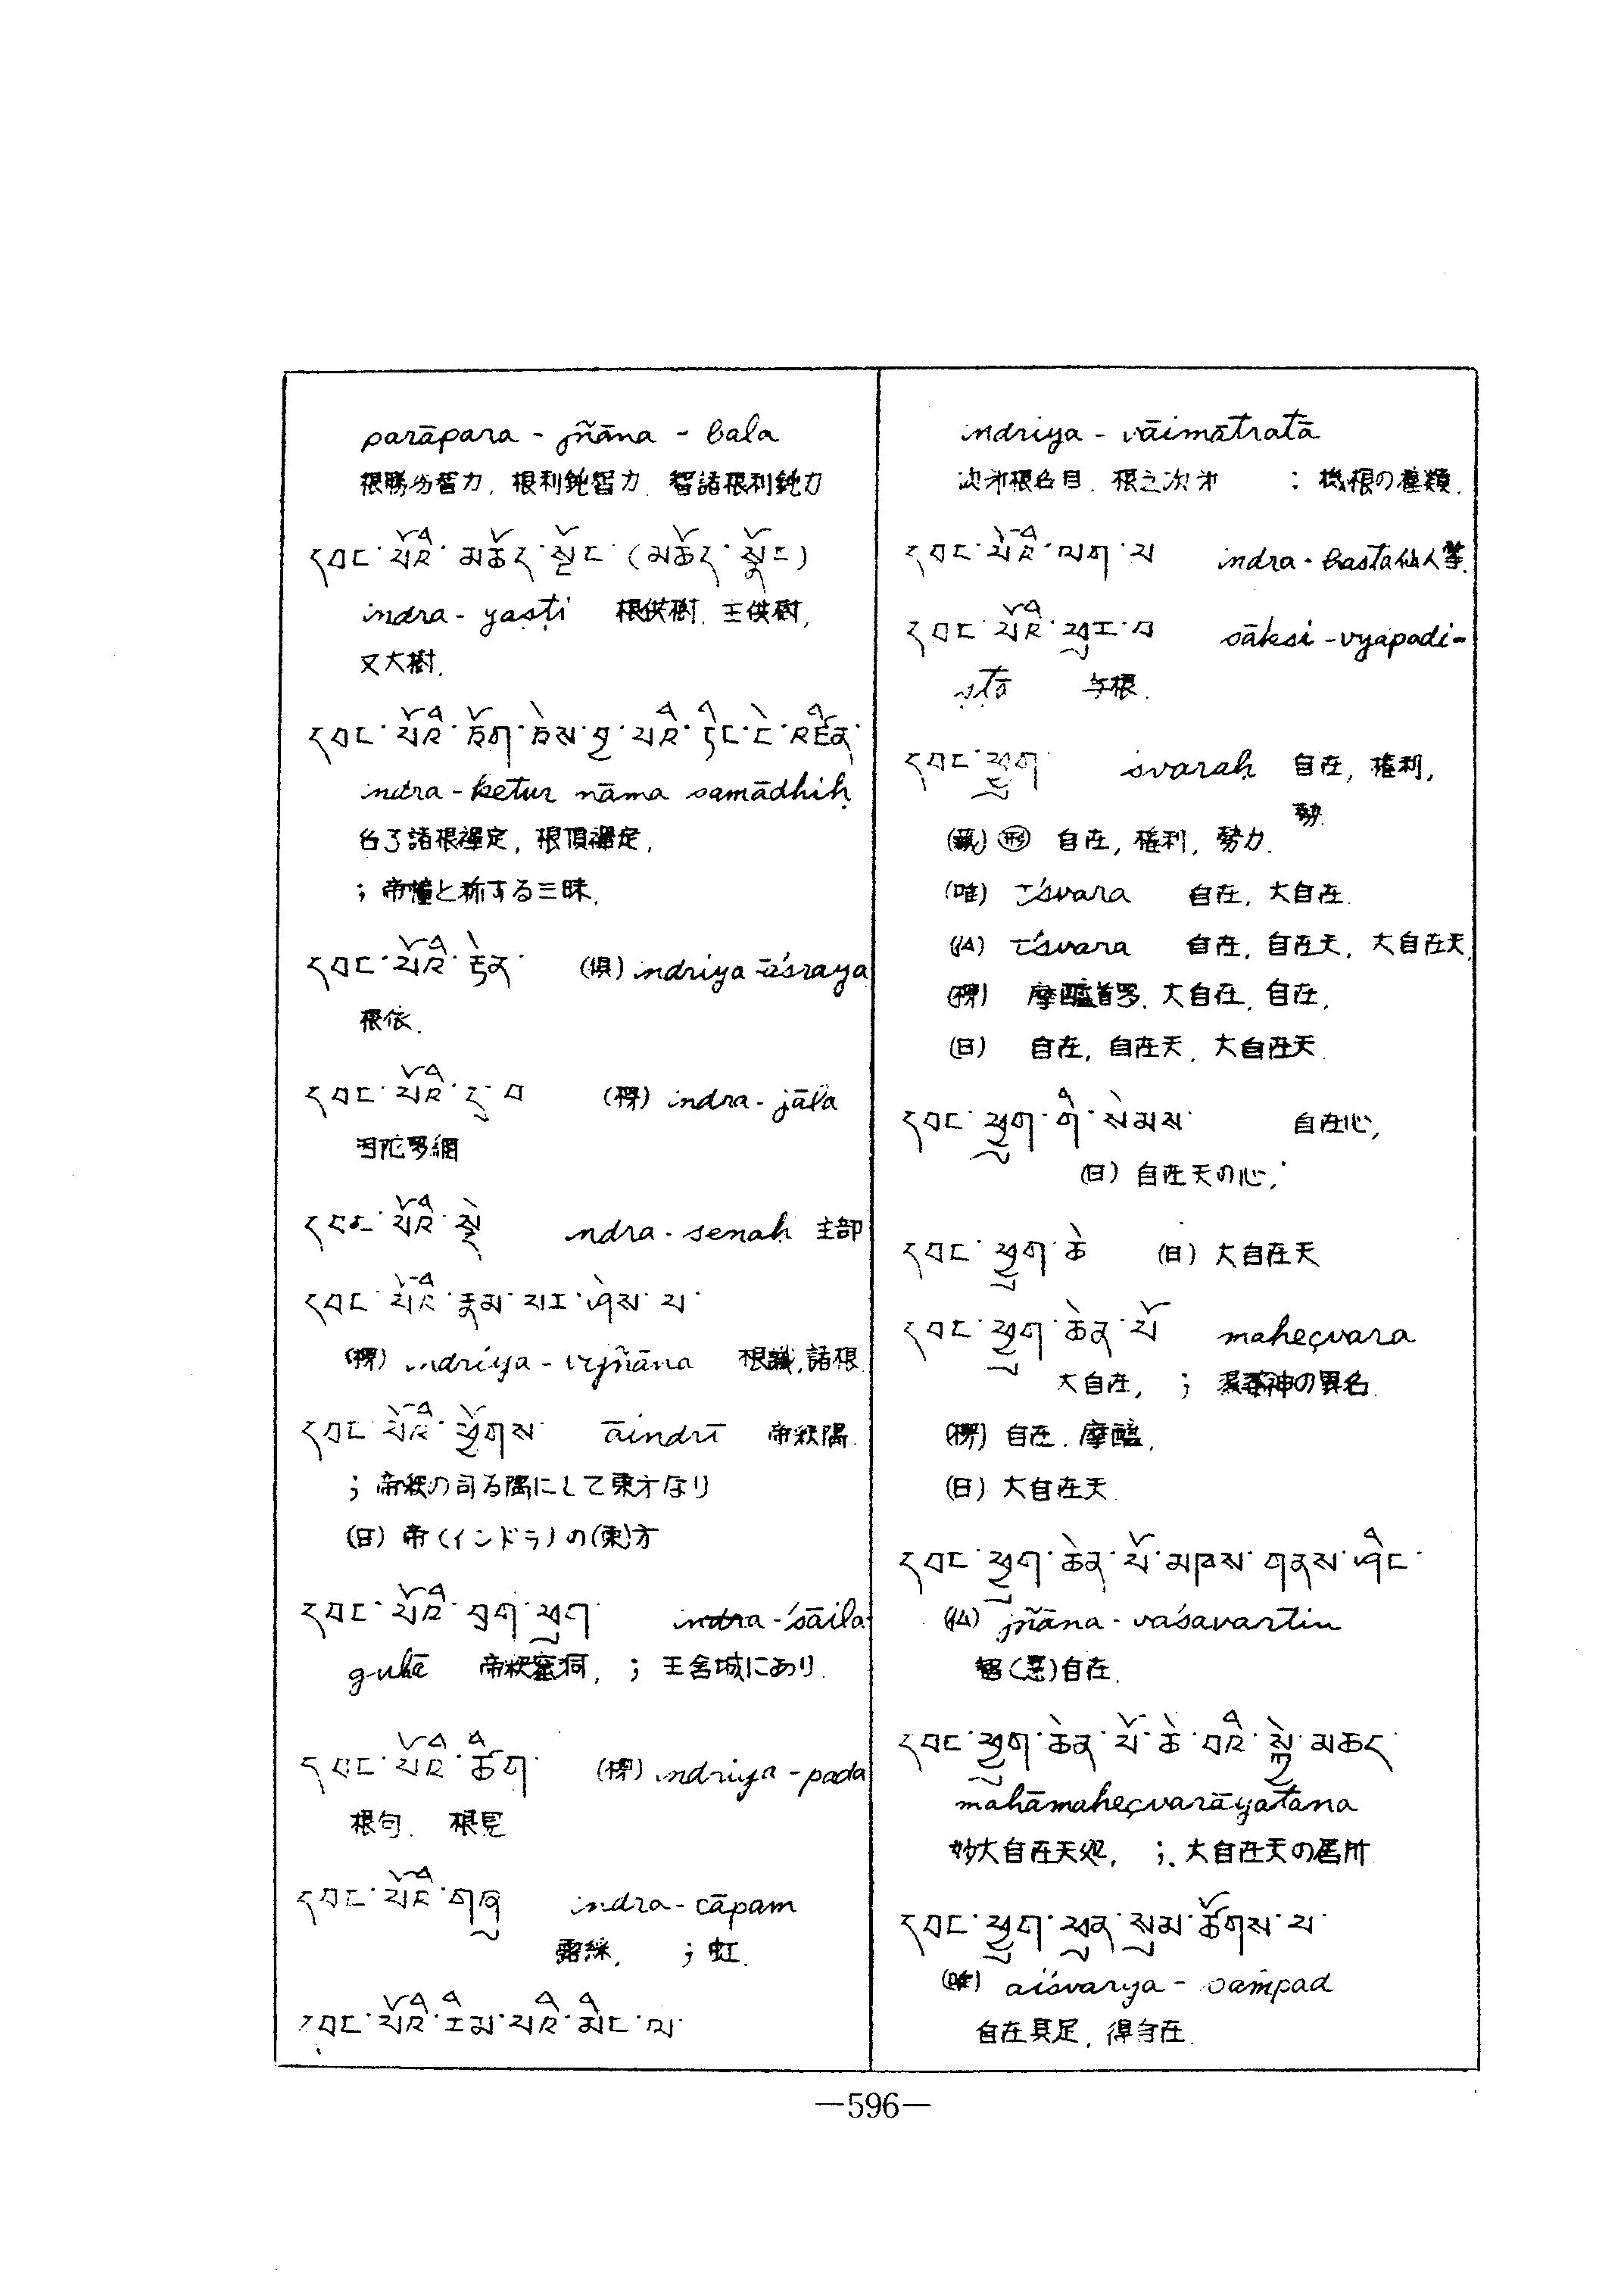 parāpara - jñāna - bala
根勝劣智力, 根利鈍智力, 智諸根利鈍力
དབང་པོའི་མཆོད་སྡོང་(མཆོད་སྡོང)
indra - yaṣṭi 根供樹, 王供樹,
又大樹.
དབང་པོའི་ཏོག་ཅེས་བྱ་བའི་ཏིང་ངེ་འཛིན་
indra - ketur nāma samādhiḥ
名了諸根禪定, 根頂禪定,
; 帝幢と称する三昧,
དབང་པོའི་རྟེན་ (倶) indriya-āśraya
根依.
དབང་པོའི་དྲ་བ (楞) indra - jāla
因陀羅網
དབང་པོའི་སྡེ ndra - senaḥ 主部
དབང་པོའི་རྣམ་པར་ཤེས་པ་
(楞) indriya - vijñāna 根識, 諸根
དབང་པོའི་ཕྱོགས་ āindrī 帝釈隅.
; 帝釈の司る隅にして東方なり
(日) 帝(インドラ)の(東)方
དབང་པོའི་བྲག་ཕུག indra - śāila
guhā 帝釈窟洞, ; 王舎城にあり.
དབང་པོའི་ཚིག་ (楞) indriya - pada
根句. 根見
དབང་པོའི་གཞུ indra - cāpam
霓綵, ; 虹.
དབང་པོའི་རིམ་པའི་མིང་ལ་
indriya - vāimātratā
次第根名目. 根之次第 : 機根の種類.
དབང་པོའི་ལག་པ indra - hasta 仙人掌.
དབང་པོའི་ཕུར་བ sākṣi - vyapadi-
ṣṭā 与根.
དབང་ཕྱུག īśvaraḥ 自在, 権利,
勢.
(蔵) ㊒ 自在, 権利, 勢力.
(唯) īśvara 自在, 大自在.
(仏) īśvara 自在, 自在天, 大自在天,
(楞) 摩醯首羅, 大自在, 自在,
(日) 自在, 自在天, 大自在天.
དབང་ཕྱུག་གི་སེམས་ 自在心,
(日) 自在天の心,
དབང་ཕྱུག་ཆེ (日) 大自在天
དབང་ཕྱུག་ཆེན་པོ maheçvara
大自在, ; 湿婆神の異名.
(楞) 自在. 摩醯,
(日) 大自在天.
དབང་ཕྱུག་ཆེན་པོ་མཁས་གནས་ཤིང་
(仏) jñāna - vaśavartin
智(慧)自在.
དབང་ཕྱུག་ཆེན་པོ་ཆེ་བའི་སྐྱེ་མཆེད་
mahāmaheçvarāyatana
妙大自在天処, ; 大自在天の居所
དབང་ཕྱུག་ཕུན་སུམ་ཚོགས་པ་
(唯) aiśvarya - saṁpad
自在具足, 得自在.
—596—